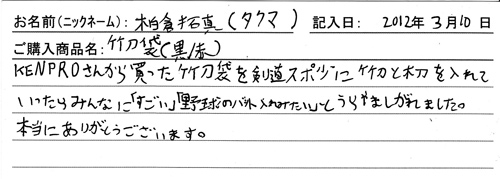 お名前(ニックネーム): 柏倉拓真(タクマ) 記入日: 2012年3月10日
ご購入商品名: 竹刀袋(黒/赤)
KENPROさんから買った竹刀袋を剣道スポ少に竹刀と木刀を入れて
いったらみんなに「すごい」「野球のバット入れみたい」とうらやましがれました。
本当にありがとうございます。